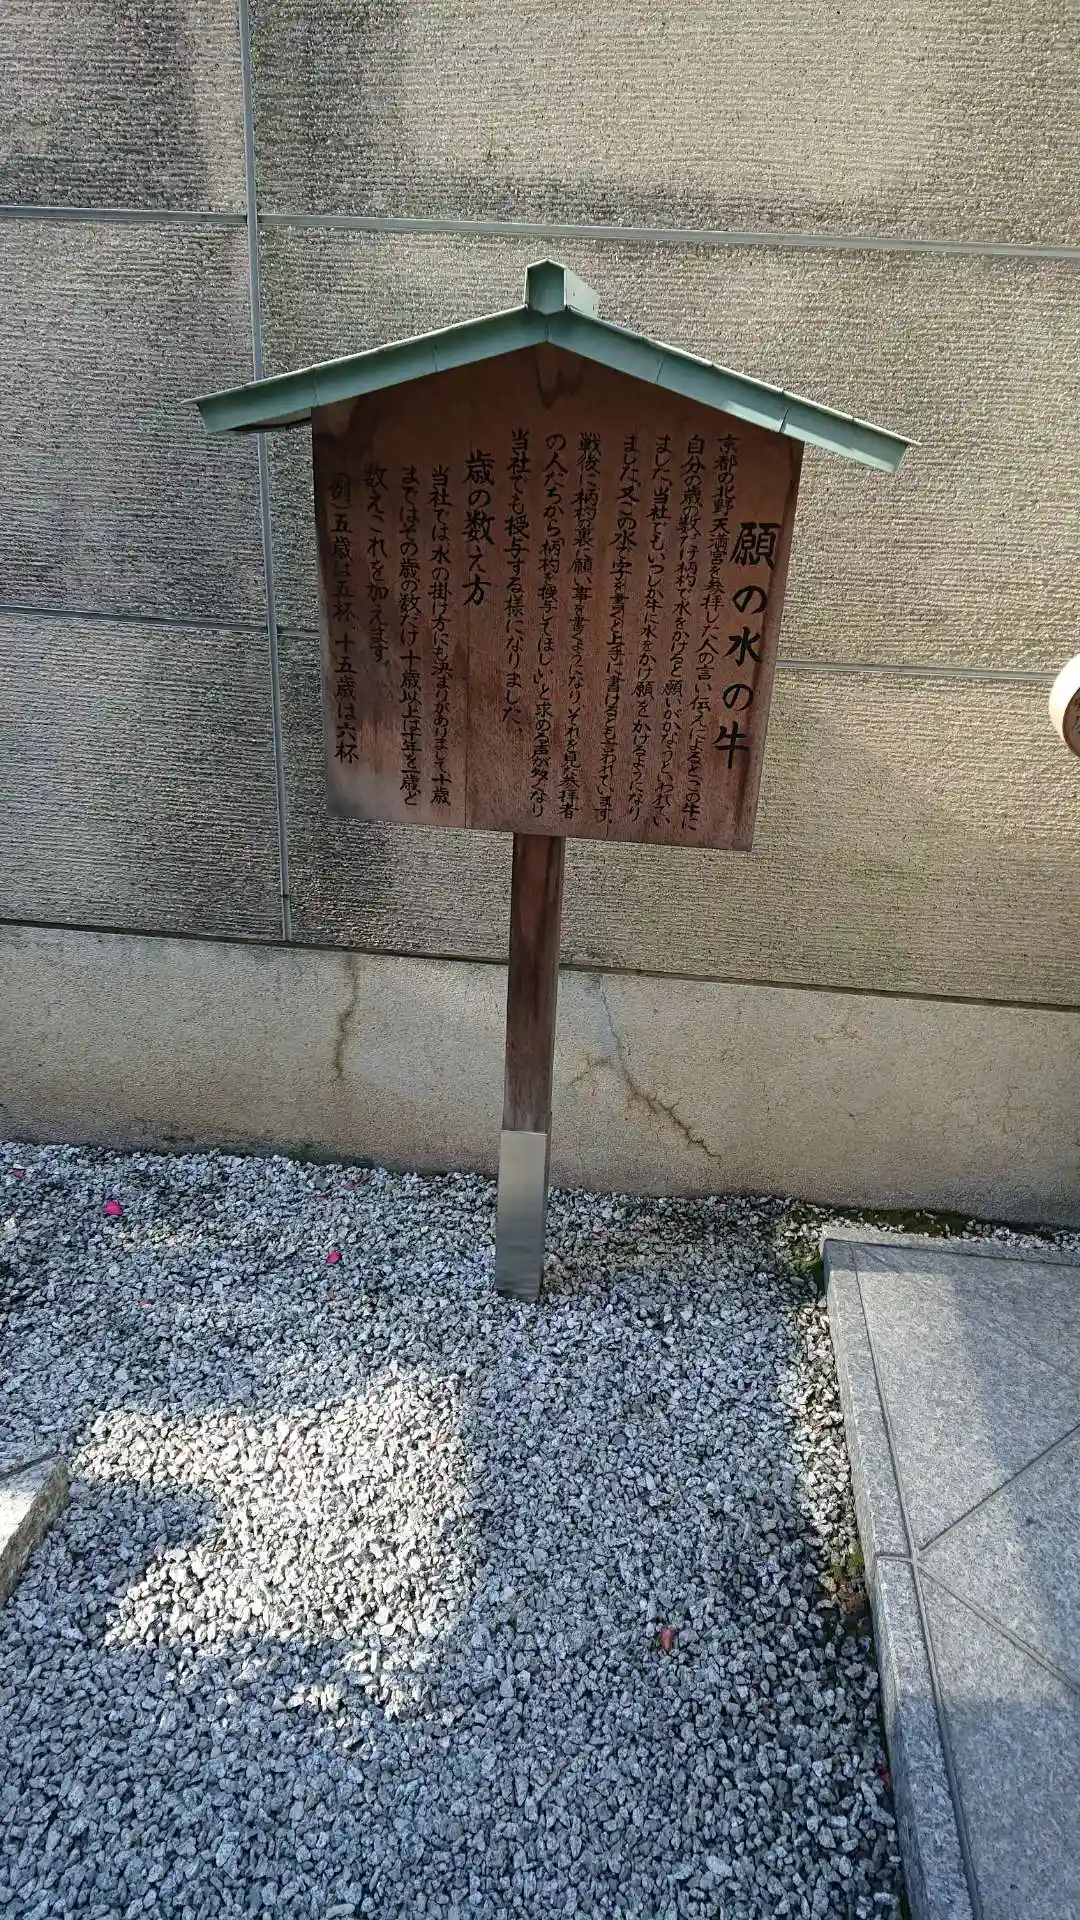 願の水の牛
京都の北野天満宮を参拝した人の言い伝えによるとこの牛に
自分の歳の数だけ柄杓で水をかけると願いがかなうといわれてい
ました。当社でも、いつしか牛に水をかけ願をかけるようになり
ました。又この水で字を書くと上手に書けるとも言われています。
戦後に柄杓の裏に願い事を書くようになり、それを見た参拝者
の人たちから「柄杓を授与してほしい」と求める声が多くなり
当社でも授与する様になりました。
歳の数え方
当社では水の掛け方にも決まりがありまして十歳
まではその歳の数だけ、十歳以上は十年を一歳と
数えこれを加えます。
(例)五歳は五杯、十五歳は六杯